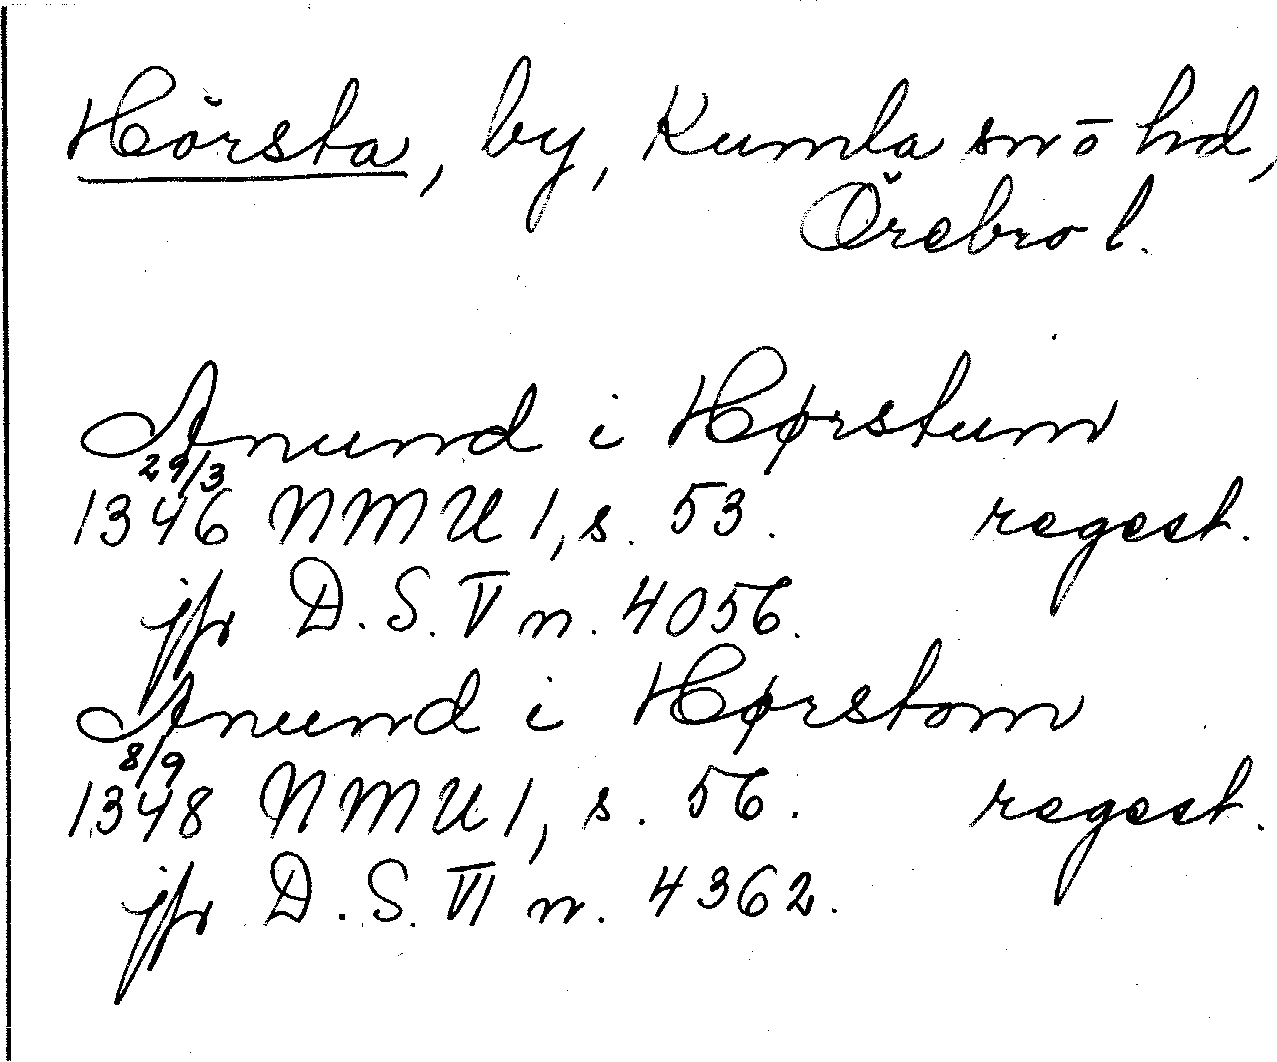 Hörsta, by, Kumla sn ō hd,
Örebro l.
Anund i Hørstum
29/3
1346 NMU 1, s. 53. regest.
jfr D. S. V n. 4056.
Anund i Hørstom
8/9
1348 NMU 1, s. 56. regest.
jfr D. S. VI n. 4362.